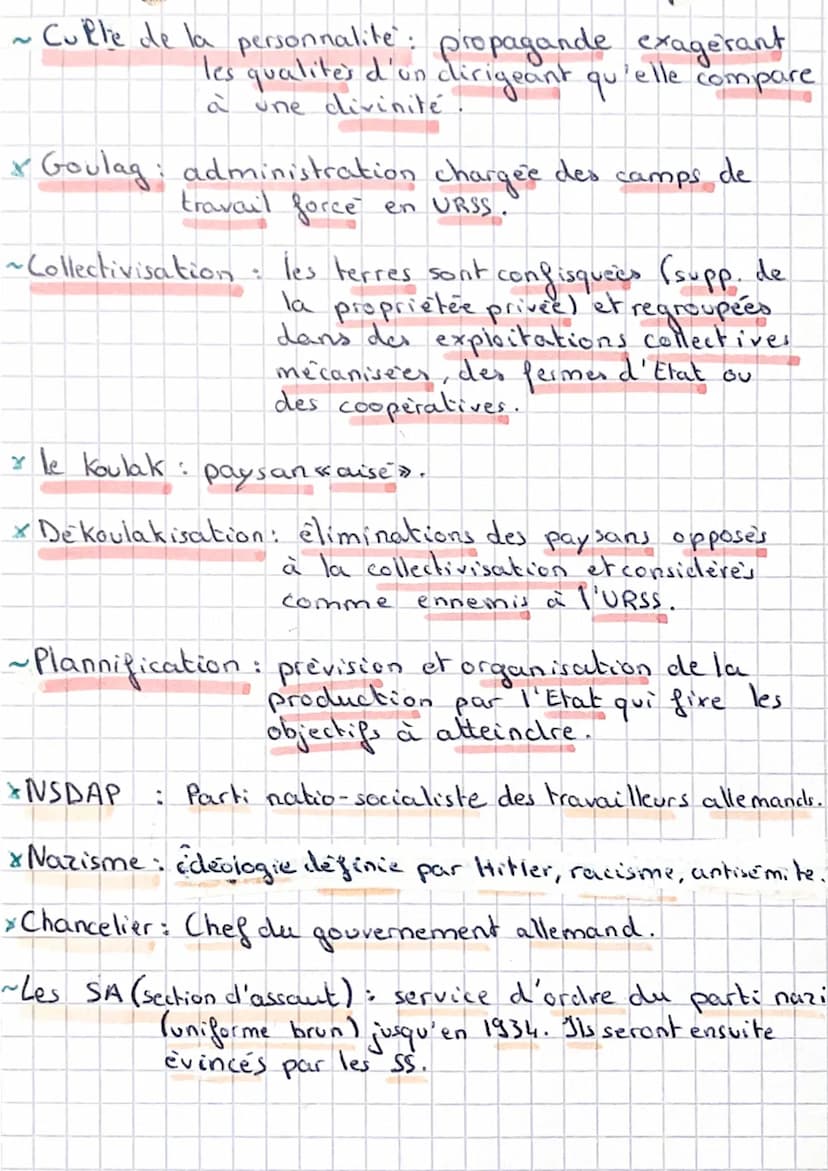 ~ Culte de la personnalité : propagande exagérant
les qualités d'un dirigeant qu'elle compare
à une divinité.
x Goulag : administration chargée des camps de
travail forcé en URSS.
~ Collectivisation : les terres sont confisquées (supp. de
la propriétée privée) et regroupées
dans des exploitations collectives
mécanisées, des fermes d'Etat ou
des coopératives.
x le koulak : paysan « aisé ».
x Dékoulakisation : éliminations des paysans opposés
à la collectivisation et considérés
comme ennemis à l'URSS.
~ Plannification : prévision et organisation de la
production par l'Etat qui fixe les
objectifs à atteindre.
x NSDAP : Parti natio-socialiste des travailleurs allemands.
x Nazisme : idéologie définie par Hitler, racisme, antisémite.
x Chancelier : Chef du gouvernement allemand.
~ Les SA (section d'assaut) : service d'ordre du parti nazi
(uniforme brun) jusqu'en 1934. Ils seront ensuite
évincés par les SS.